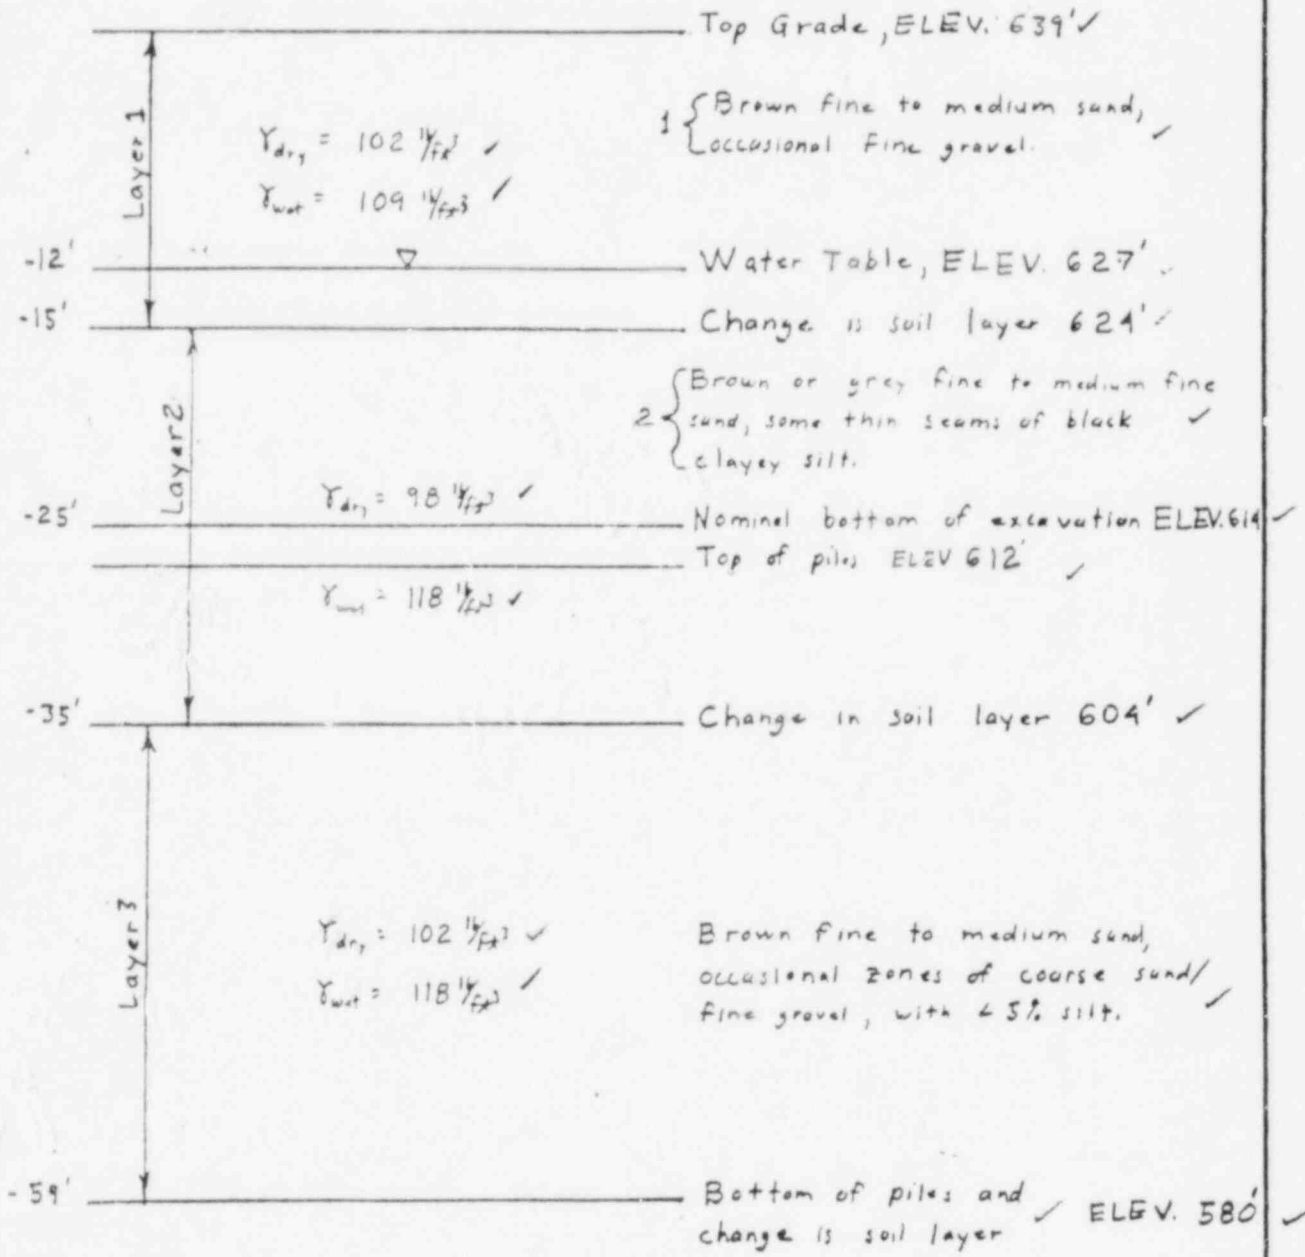 Top Grade, ELEV. 639' ✓
Layer 1
γdry = 102 lb/ft³ ✓
γwet = 109 lb/ft³ ✓
1 { Brown fine to medium sand,
occasional fine gravel. ✓
-12'
Water Table, ELEV. 627'
-15'
Change is soil layer 624' ✓
Layer 2
2 { Brown or grey fine to medium fine
sand, some thin seams of black ✓
clayey silt.
γdry = 98 lb/ft³ ✓
-25'
Nominal bottom of excavation ELEV. 614 ✓
Top of piles ELEV 612' ✓
γwet = 118 lb/ft³ ✓
-35'
Change in soil layer 604' ✓
Layer 3
γdry = 102 lb/ft³ ✓
γwet = 118 lb/ft³ ✓
Brown fine to medium sand,
occasional zones of course sand/
fine gravel, with < 5% silt. ✓
-59'
Bottom of piles and ✓ ELEV. 580' ✓
change is soil layer